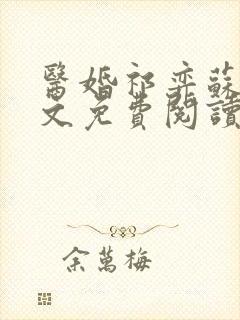 醫婚祁奕蘇
文免費閱讀
余萬梅